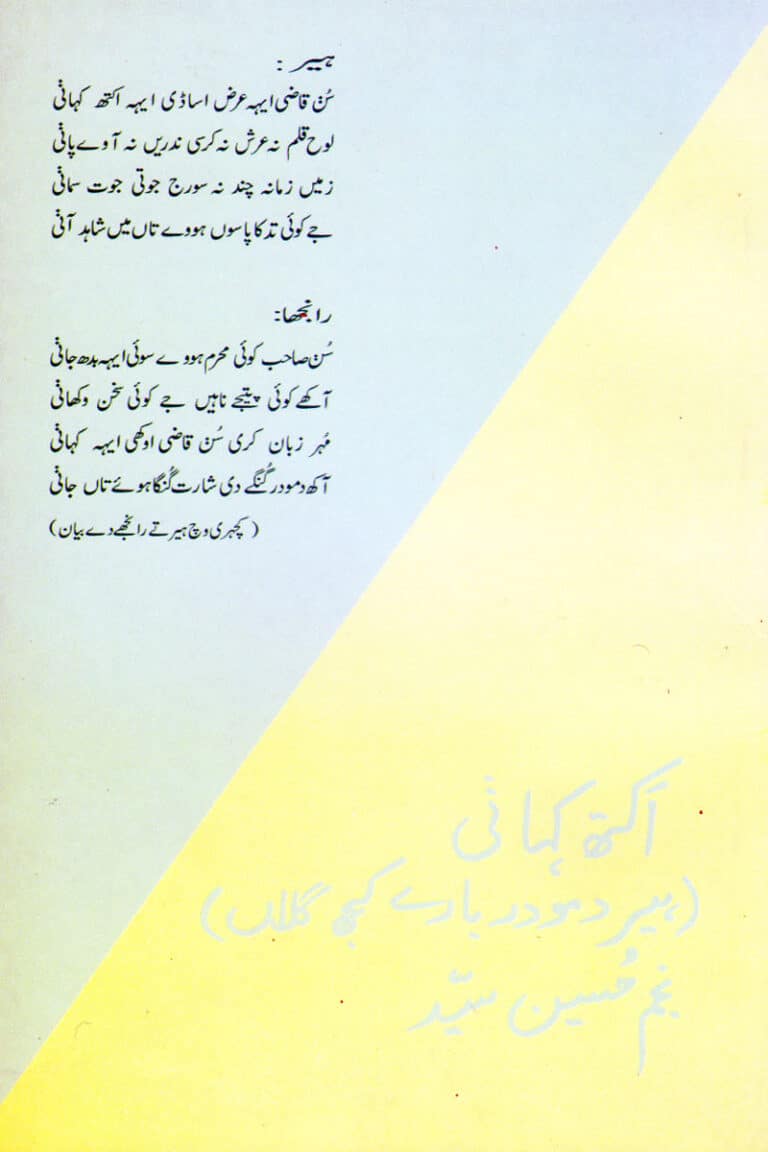 ہیر :
سُن قاضی ایہہ عرض اساڈی ایہہ اکتھ کہانی
لوح قلم نہ عرش نہ کرسی ندریں نہ آوے پانی
زمیں زمانہ چند نہ سورج جوتی جوت سمانی
جے کوئی تدکا پاسوں ہووے تاں میں شاہد آنی
رانجھا:
سُن صاحب کوئی محرم ہووے سوئی ایہہ بدھ جانی
آکھے کوئی پتیجے ناہیں جے کوئی سخن وکھانی
مُہر زبان کری سُن قاضی اوکھی ایہہ کہانی
آکھ دمودر گُنگے دی شارت گُنگا ہوئے تاں جانی
(کچہری وچ ہیر تے رانجھے دے بیان)
اَکتھ کہانی
(ہیر دمودر بارے کجھ گلاں)
نجم حُسین سیّد